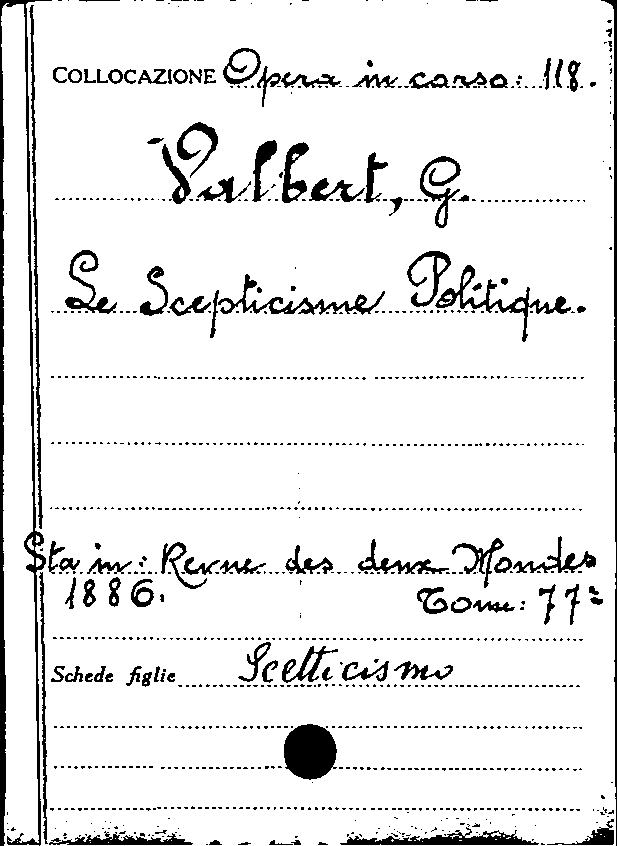 COLLOCAZIONE Opera in corso: 118.
Valbert, G.
Le Scepticisme Politique.
Sta in: Revue des deux Mondes
1886. Tome: 77º
Schede figlie Scetticismo